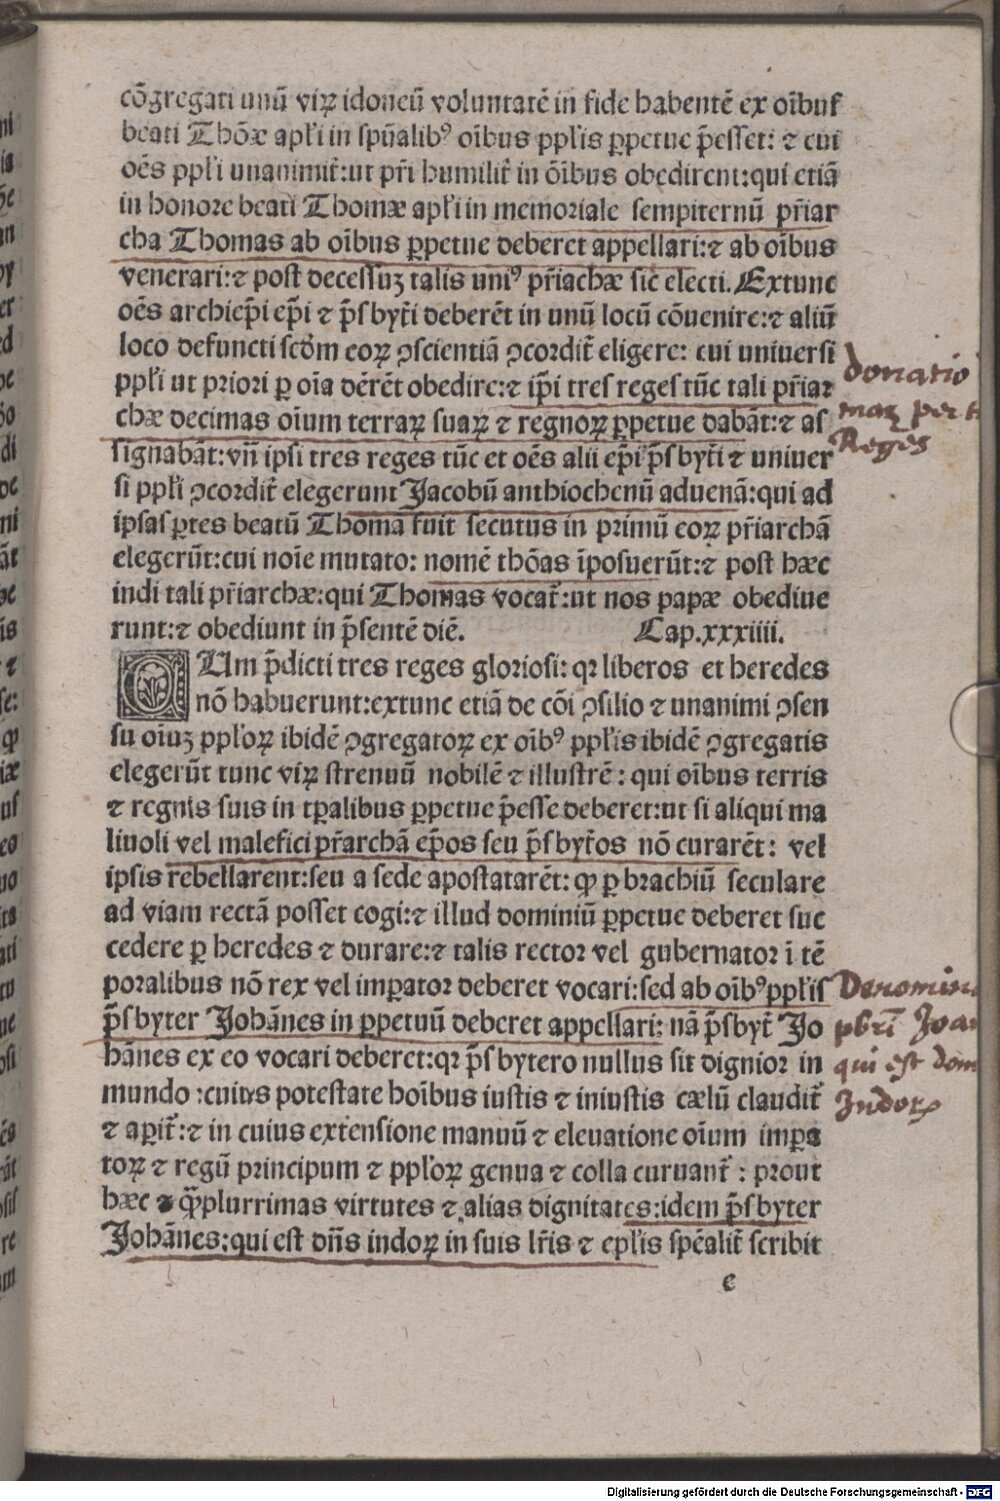 cõgregati unũ viꝝ idoneũ voluntatẽ in fide habentẽ ex oĩbus
beati Thõæ apľi in spũalibꝰ oĩbus ppľis ꝑpetue p̃esset: ⁊ cui
oẽs ppľi unanimit̃:ut pr̃i humilit̃ in õibus obedirent:qui etiã
in honore beati Thomæ apľi in memoriale sempiternũ pr̃iar
cha Thomas ab oĩbus ꝑpetue deberet appellari:⁊ ab oĩbus
venerari:⁊ post decessuꝫ talis uniꝰ pr̃iachæ sic̃ electi. Extunc
oẽs archiep̃i ep̃i ⁊ p̃sbyt̃i deberẽt in unũ locũ cõuenire:⁊ aliũ
loco defuncti scďm eoꝝ ꝯscientiã ꝯcordit̃ eligere: cui uniuersi
ppľi ut priori ꝑ oĩa dẽrẽt obedire:⁊ ip̃i tres reges tũc tali pr̃iar
chæ decimas oĩum terraꝝ suaꝝ ⁊ regnoꝝ ꝑpetue dabãt:⁊ as
signabãt:vñ ipsi tres reges tũc et oẽs alii ep̃i p̃sbyt̃i ⁊ uniuer
si ppľi ꝯcordit̃ elegerunt Jacobũ anthiochenũ aduenã:qui ad
ipsas ꝑtes beatũ Thomã fuit secutus in primũ eoꝝ pr̃iarchã
elegerũt:cui noĩe mutato: nomẽ thõas ĩposuerũt:⁊ post hæc
indi tali pr̃iarchæ:qui Thomas vocat̃:ut nos papæ obediue
runt:⁊ obediunt in p̃sentẽ diẽ. Cap.xxxiiii.
CUm p̃dicti tres reges gloriosi: qꝛ liberos et heredes
nõ habuerunt:extunc etiã de cõi ꝯsilio ⁊ unanimi ꝯsen
su oĩuꝫ ppľoꝝ ibidẽ ꝯgregatoꝝ ex oĩbꝰ ppľis ibidẽ ꝯgregatis
elegerũt tunc viꝝ strenuũ nobilẽ ⁊ illustrẽ: qui oĩbus terris
⁊ regnis suis in tꝑalibus ꝑpetue p̃esse deberet:ut si aliqui ma
liuoli vel malefici pr̃archã ep̃os seu p̃sbyt̃os nõ curarẽt: vel
ipsis rebellarent:seu a sede apostatarẽt: ꝙ ꝑ brachiũ seculare
ad viam rectã posset cogi:⁊ illud dominiũ ꝑpetue deberet suc
cedere ꝑ heredes ⁊ durare:⁊ talis rector vel gubernator ĩ tẽ
poralibus nõ rex vel imꝑator deberet vocari:sed ab oĩbꝰ ppľis
p̃sbyter Johãnes in ꝑpetuũ deberet appellari: nã p̃sbyt̃ Jo
hãnes ex eo vocari deberet:qꝛ p̃sbytero nullus sit dignior in
mundo :cuius potestate hoĩbus iustis ⁊ iniustis cælũ claudit̃
⁊ aꝑit̃:⁊ in cuius extensione manuũ ⁊ eleuatione oĩum imꝑa
toꝝ ⁊ regũ principum ⁊ ppľoꝝ genua ⁊ colla curuant̃ : prout
hæc ⁊ ꝙ̃plurrimas virtutes ⁊ alias dignitates:idem p̃sbyter
Johãnes:qui est dñs indoꝝ in suis lr̃is ⁊ epľis spẽalit̃ scribit
e
donatio
Reges
Johan
qui est dom
Indoꝝ
Digitalisierung gefördert durch die Deutsche Forschungsgemeinschaft - DFG